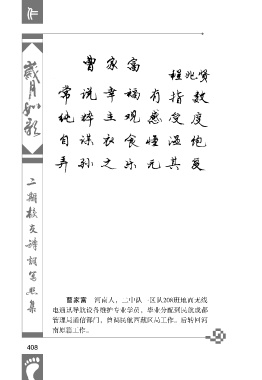 曹家富
程兆贤
常说幸福有指数
纯粹主观感受度
自谋衣食恒温饱
弄孙之乐元其复
岁月如歌
二期校友诗词
集
曹家富 河南人，二中队一区队208班地面无线
电通讯导航设备维护专业学员，毕业分配到民航成都
管理局通信部门，曾调民航西藏区局工作。后转回河
南原籍工作。
408